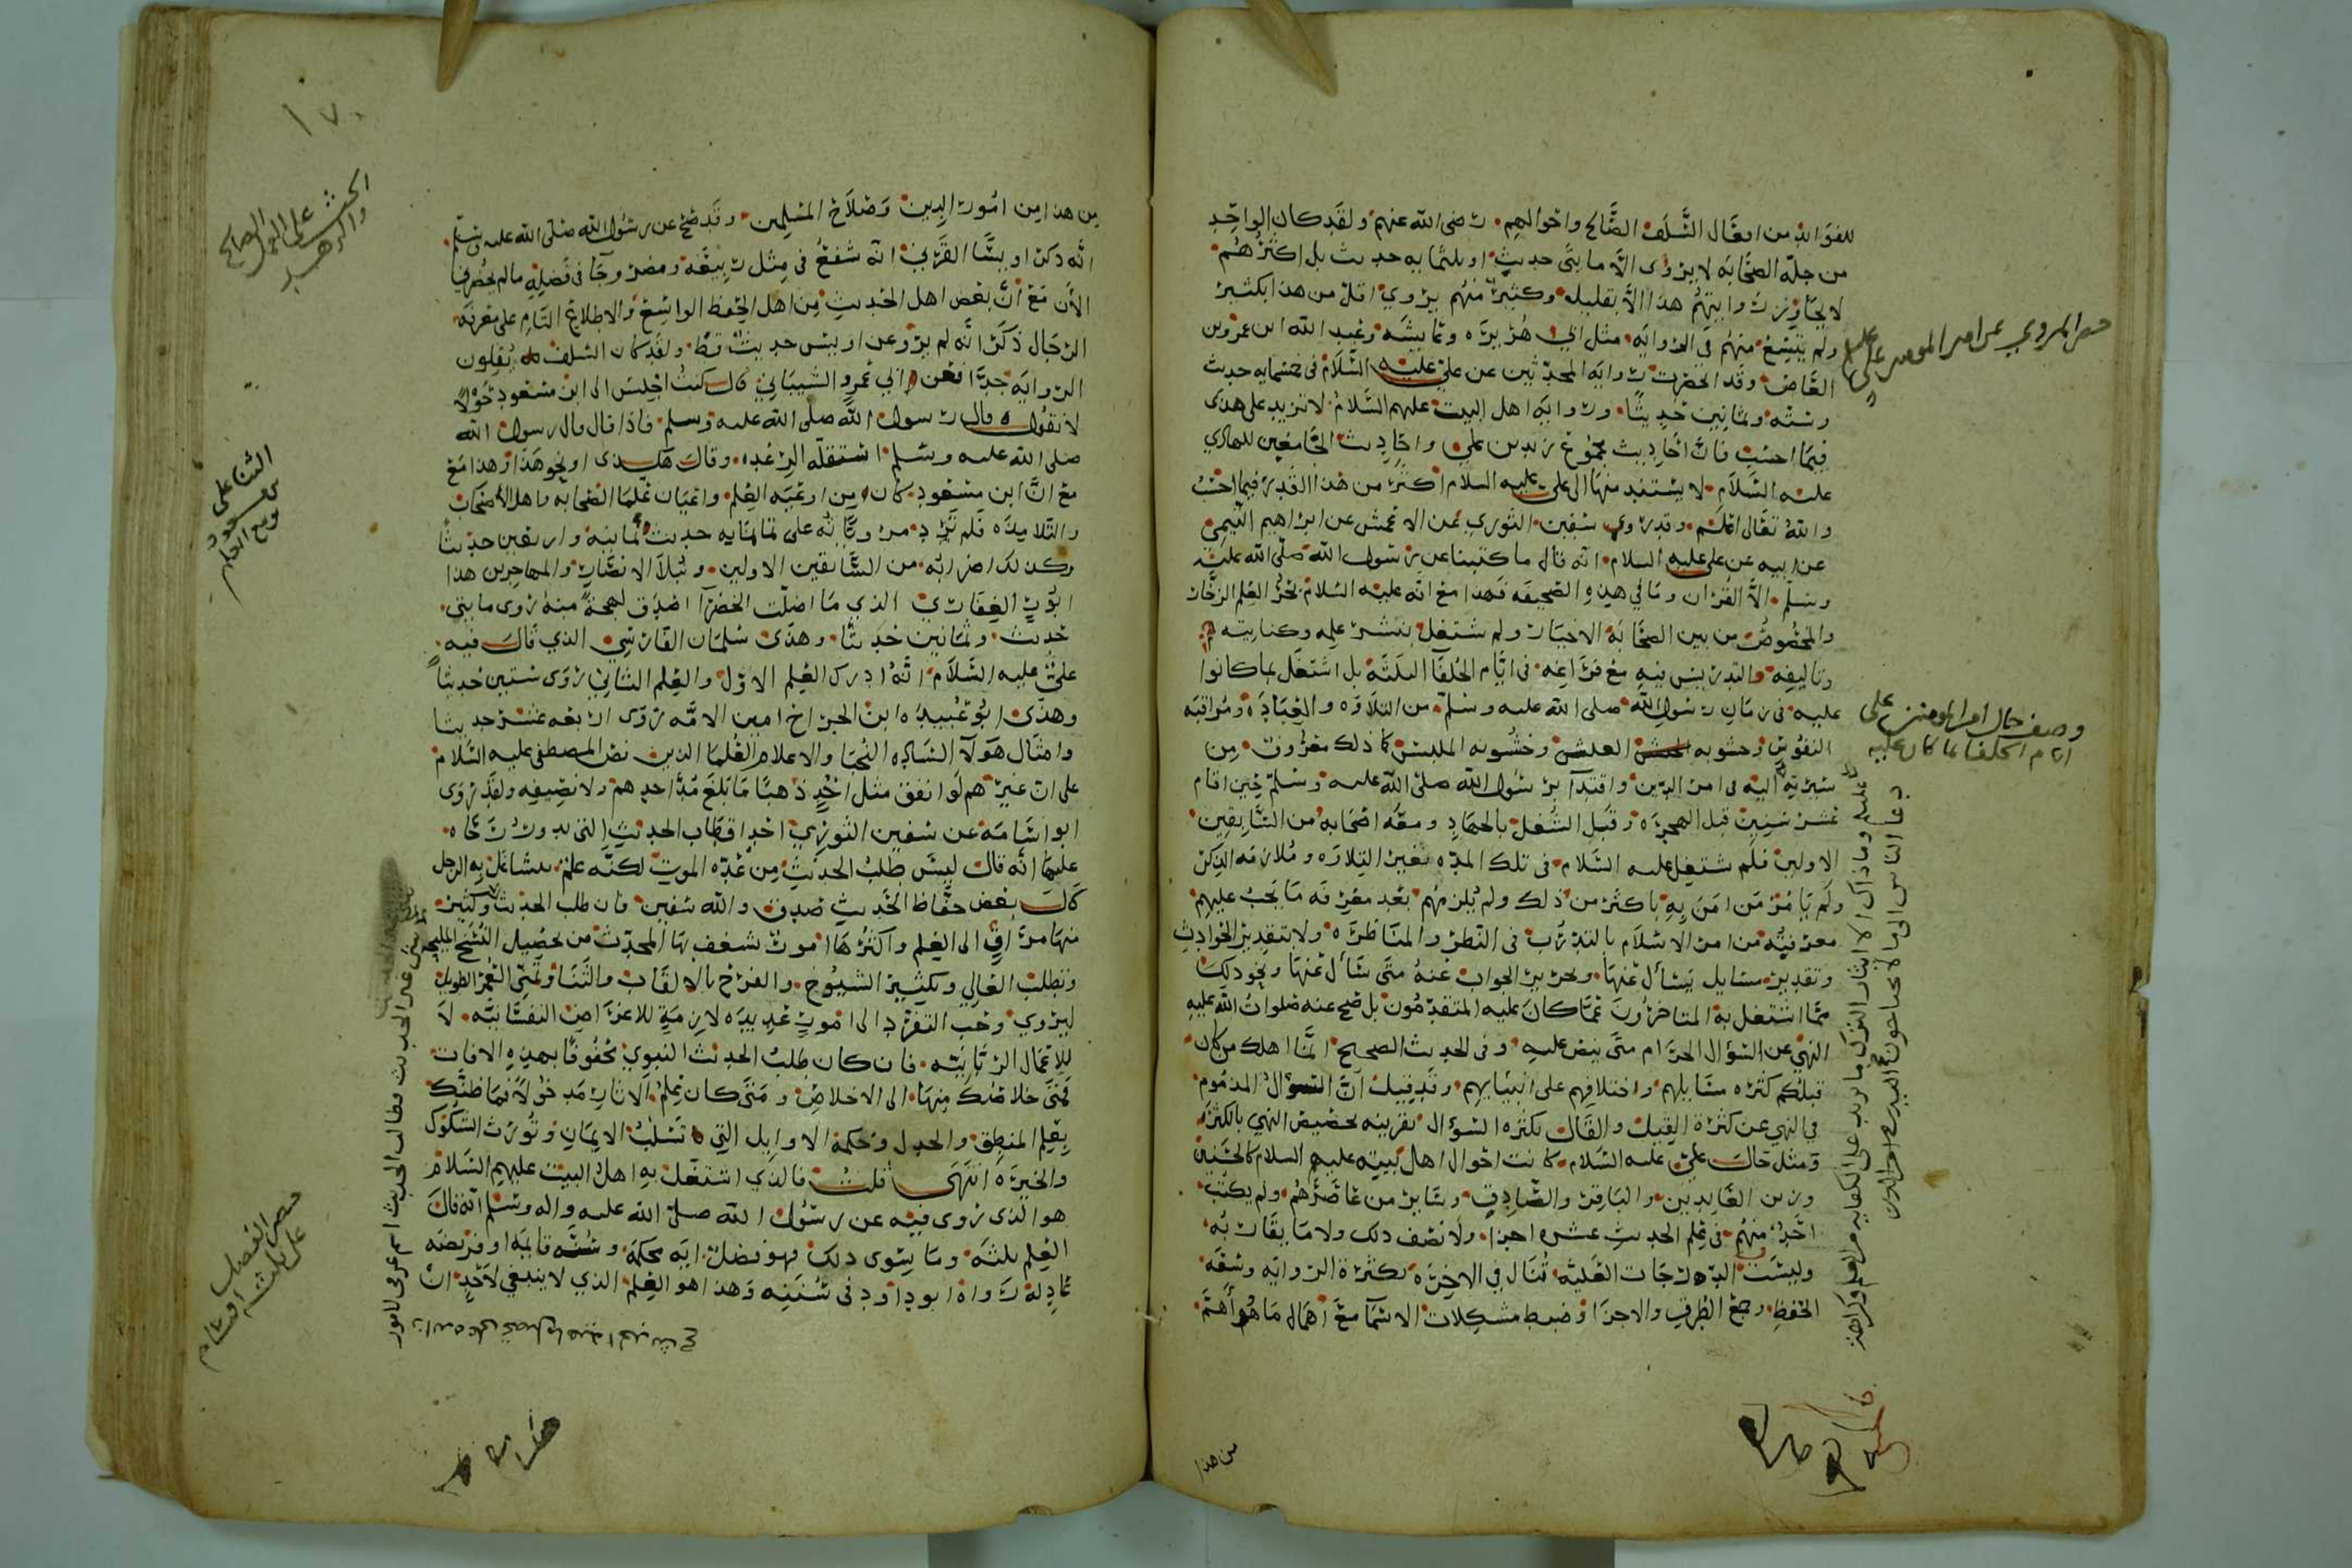 للفوايد من افعال السلف الصالح واحوالهم رضى الله عنهم ولقد كان الواحد
من جلة الصحابه لا يروى الا مايتى حديث او ثلثمايه حديث بل اكثرهم
لا تجاوز روايتهم هذا الا بقليله وكثير منهم يروي اقل من هذا بكثير
ولم يتسع منهم في الروايه مثل ابي هريره وعايشه وعبد الله ابن عمرو بن
العاص وقد الحصرت روايه المحدثين عن علي عليه السلام فى خمسمايه حديث
وسته وثمانين حديثا وروايه اهل البيت عليهم السلام لا تزيد على هذى
فيما احسب فان احاديث مجموع زيد بن علي واحاديث الجامعين للهادي
عليه السلام لا يستند منها الى على عليه السلام اكثر من هذا القدر فيما احسب
والله تعالى اعلم وقد روى سفين الثوري عن الاعمش عن ابراهيم التيمي
عن ابيه عن على عليه السلام انه قال ما كتبنا عن رسول الله صلى الله عليه
وسلم الا القران وما في هذه الصحيفه فهذا مع انه عليه السلام بحر العلم الزخار
والمخصوص من بين الصحابة الاخيار ولم يشتغل بنشر علمه وكتابته
وتاليفه والتدريس فيه مع فراغه فى ايام الخلفا الثلثة بل اشتغل بما كانوا
عليه في زمان رسول الله صلى الله عليه وسلم من التلاوه والعباده ومراقبه
النفوس وخشونه العيش وخشونه الملبس كما ذلك معروف من
سيرته عشر سنين قبل الهجره وقبل الشغل بالجهاد ومعه اصحابه من السابقين
الاولين فلم يشتغل عليه السلام فى تلك المده بغير التلاوه وملازمه الذكر
ولم يامر من امن به باكثر من ذلك ولم يلزمهم بعد معرفه ما يجب عليهم
معرفته من امر الاسلام بالتدرب فى النظر والمناظره ولا بتقدير الحوادث
وتقدير مسايل يسأل عنها وتحرير الجواب عنه متى سأل عنها ونحو ذلك
مما اشتغل به المتاخرون عما كان عليه المتقدمون بل صح عنه صلوات الله عليه
النهي عن السؤال الحرام وفى الحديث الصحيح انما اهلك من كان
قبلكم كثره مسايلهم واختلافهم على انبيايهم وقد قيل ان السؤال المذموم
في النهي عن كثرة القيل والقال بكثره السؤال بقرينه تخصيص النهي بالكثره
ومثل حال علي عليه السلام كانت احوال اهل بيته عليهم السلام كالحسنين
وزين العابدين والباقر والصادق وساير من عاصرهم ولم يكتب
احد منهم فى علم الحديث عشره اجزا ولا نصف ذلك ولا ما يقاربه
وليست الدرجات العليه تنال في الاخره بكثرة الروايه وسعه
الحفظ وجمع الطرق والاجزا وضبط مشكلات الاسما مع اهمال ما هو اهم
من هذا
حصر المروي عن امير المومنين على
وصف حال امير المومنين على
ايام الخلفا بما كان عليه
من هذا من امور الدين وصلاح المسلمين وقد صح عن رسول الله صلى الله عليه وسلم
انه ذكر اويسا القرني انه شفع في مثل ربيعه ومضر وجا في فضله ما لم يحضرني
الان مع ان بعض اهل الحديث من اهل الحفظ الواسع والاطلاع التام على معرفه
الرجال ذكر انه لم يرو عن اويس حديث قط ولقد كان السلف يقلون
الروايه جدا فعن ابي عمرو الشيباني قال كنت اجلس الى ابن مسعود حولا
لا يقول قال رسول الله صلى الله عليه وسلم فاذا قال قال رسول الله
صلى الله عليه وسلم استقلته الرعده وقال هكذى او نحو هذا وهذا مع
مع ان ابن مسعود كان من اوعيه العلم واعيان علما الصحابه من اهل الاصحاب
والتلامذه فلم تزد مروياته على ثمانمايه حديث وثمانيه واربعين حديثا
وكذلك اضرابه من السابقين الاولين ونبلا الانصار والمهاجرين هذا
ابوذر الغفاري الذي ما اظلت الخضرا اصدق لهجة منه روى مايتي
حديث وثمانين حديثا وهذى سلمان الفارسي الذي قال فيه
علي عليه السلام انه ادرك العلم الاول والعلم الثاني روى ستين حديثا
وهذى ابو عبيده ابن الجراح امين الامه روى اربعه عشر حديثا
وامثال هولا الساده النجبا والاعلام العلما الذين نص المصطفى عليه السلام
على ان غيرهم لو انفق مثل احد ذهبا ما بلغ مد احدهم ولا نصيفه ولقد روى
ابو اسامه عن سفين الثوري احد اقطاب الحديث
عليها انه قال ليس طلب الحديث من عده الموت لكنه علم يتشاغل به الرجل
قال بعض حفاظ الحديث صدق والله سفين فان طلب الحديث
منها مراق الى العلم واكثرها امور شغف بها المحدث من تحصيل النسخ المليحه
وتطلب العالي وتكثير الشيوخ والفرح بالالقاب والثنا وتمنى العمر الطويل
ليروي وحب التفرد الى امور عديده لازمة للاغراض النفسانيه لا
للاعمال الربانيه فان كان طلب الحديث النبوي محفوفا بهذه الافات
فمتى خلاصك منها الى الاخلاص ومتى كان علم الاثار مدخولا فما ظنك
بعلم المنطق والجدل وحكمة الاوايل التي تسلب الايمان وتورث الشكوك
والحيره انتهى قلت فالذي اشتغل به اهل البيت عليهم السلام
هو الذى روى فيه عن رسول الله صلى الله عليه واله وسلم انه قال
العلم ثلثه وما سوى ذلك فهو فضل ايه محكمه وسنه قايمه او فريضه
عادله رواه ابو داود فى سننه وهذا هو العلم الذي لا ينبغي لاحد ان
١٧٠
الحث على العمل الصالح
والزهد
الثنا على